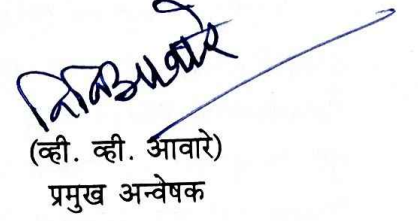 (व्ही. व्ही. आवारे)
प्रमुख अन्वेषक